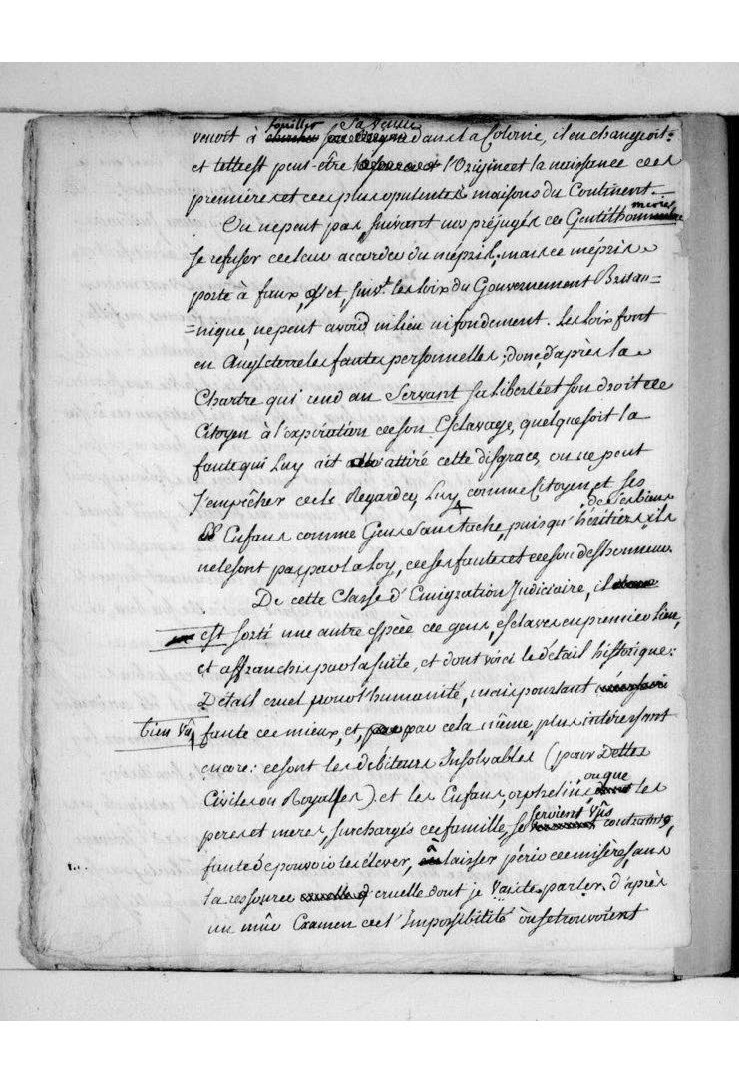 fouiller sa veine
venoit à chercher dans la Colonie, il en changeoit:
et telle est peut-être l'Origine et la naissance des
premieres et des plus opulentes maisons du Continent.
On ne peut pas, suivant nos préjugés de Gentilhommerie
se refuser de leur accorder du mépris; mais ce mépris
porte à faux, et, suivt. les loix du Gouvernement Britan=
=nique, ne peut avoir ni lieu ni fondement. Les Loix font
en Angleterre les fautes personnelles; donc, d'après la
Chartre qui rend au Servant sa liberté et son droit de
Citoyen à l'expiration de son Esclavage, quelque soit la
faute qui Luy ait attiré cette disgrace, on ne peut
s'empêcher de le Regarder, Luy comme Citoyen et ses
de ses biens
Enfans comme Gens sans tache, puisqu'héritiers, ils
ne le sont pas par la Loy, de ses fautes et de son deshonneur.
De cette Classe d'Emigration Judiciaire, il
est sorti une autre espèce de gens, esclaves en premier lieu,
et affranchis par la suite, et dont voici le détail historique:
Détail cruel pour l'humanité, mais pourtant
bien vû, faute de mieux, et par cela même, plus intéressant
encore: ce sont les débiteurs Insolvables (pour Dettes
Civiles ou Royalles) et les Enfans, orphelins, ou que les
peres et meres, surchargés de famille, se seroient vûs contraints,
faute de pouvoir les élever, à laisser périr de misère, sans
la ressource cruelle dont je vais te parler. d'après
un mûr Examen de l'Impossibilité où se trouvoient